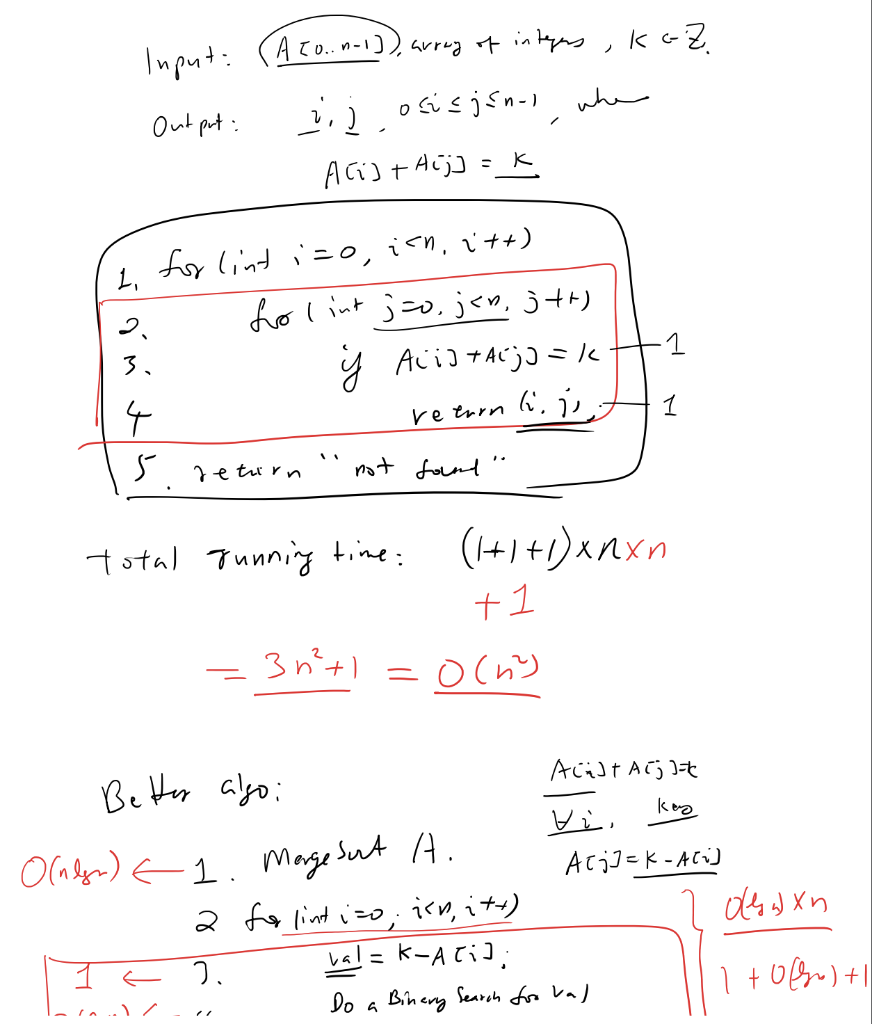 Input: A[0..n-1], array of integers, K ∈ Z.
Output: i, j, 0≤i≤j≤n-1, where
A[i] + A[j] = K
1. for (int i=0, i<n, i++)
2. for (int j=0, j<n, j++)
3. if A[i] + A[j] = K — 1
4 return (i, j), — 1
5. return "not found"
Total running time: (1+1+1)×n×n
+ 1
= 3n²+1 = O(n²)
Better algo:
A[i] + A[j]=k
∀i, key
A[j] = K - A[i]
O(nlgn) ← 1. MergeSort A.
2 for (int i=0, i<n, i++)
O(lgn) × n
1 ← 3. val = K - A[i];
1 + O(lgn) + 1
Do a Binary Search for val